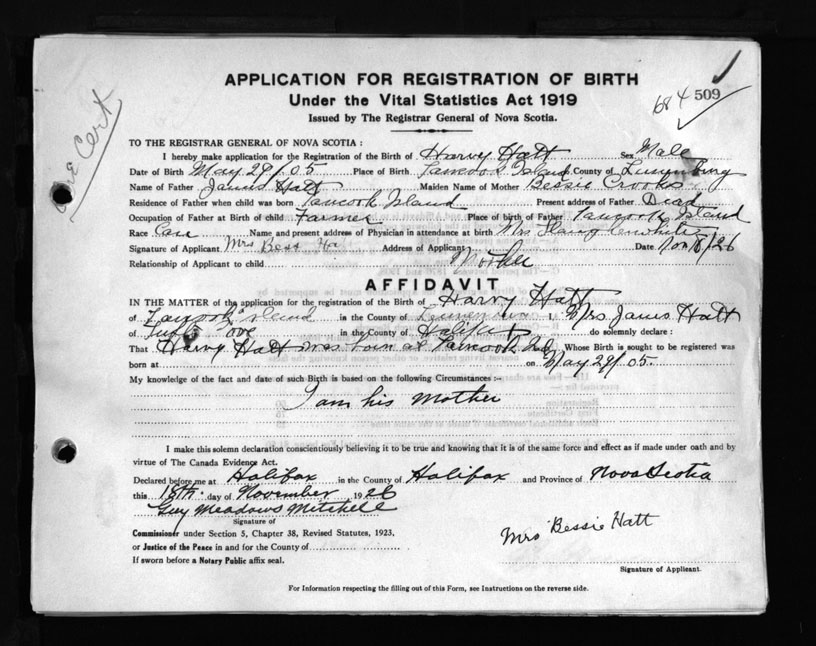 APPLICATION FOR REGISTRATION OF BIRTH
Under the Vital Statistics Act 1919
Issued by The Registrar General of Nova Scotia.
684 509
Cert
TO THE REGISTRAR GENERAL OF NOVA SCOTIA :
I hereby make application for the Registration of the Birth of Harry Hatt Sex Male
Date of Birth May 29/05 Place of Birth Tancook Island County of Lunenburg
Name of Father James Hatt Maiden Name of Mother Bessie Crooks
Residence of Father when child was born Tancook Island Present address of Father Dead
Occupation of Father at Birth of child Farmer Place of birth of Father Tancook Island
Race Can Name and present address of Physician in attendance at birth Mrs
Signature of Applicant Mrs Bess Ha Address of Applicant Date Nov 18/26
Relationship of Applicant to child Mother
AFFIDAVIT
IN THE MATTER of the application for the registration of the Birth of Harry Hatt
of Tancook Island in the County of I, Mrs James Hatt
of Cove in the County of Halifax do solemnly declare :
That Harry Hatt was born at Tancook Isd Whose Birth is sought to be registered was
born at on May 29/05.
My knowledge of the fact and date of such Birth is based on the following Circumstances :-
I am his Mother
I make this solemn declaration conscientiously believing it to be true and knowing that it is of the same force and effect as if made under oath and by
virtue of The Canada Evidence Act.
Declared before me at Halifax in the County of Halifax and Province of Nova Scotia
this 18th. day of November 1926
Guy Meadows Mitchell
Signature of
Commissioner under Section 5, Chapter 38, Revised Statutes, 1923,
or Justice of the Peace in and for the County of
If sworn before a Notary Public affix seal.
Mrs Bessie Hatt
Signature of Applicant.
For Information respecting the filling out of this Form, see Instructions on the reverse side.